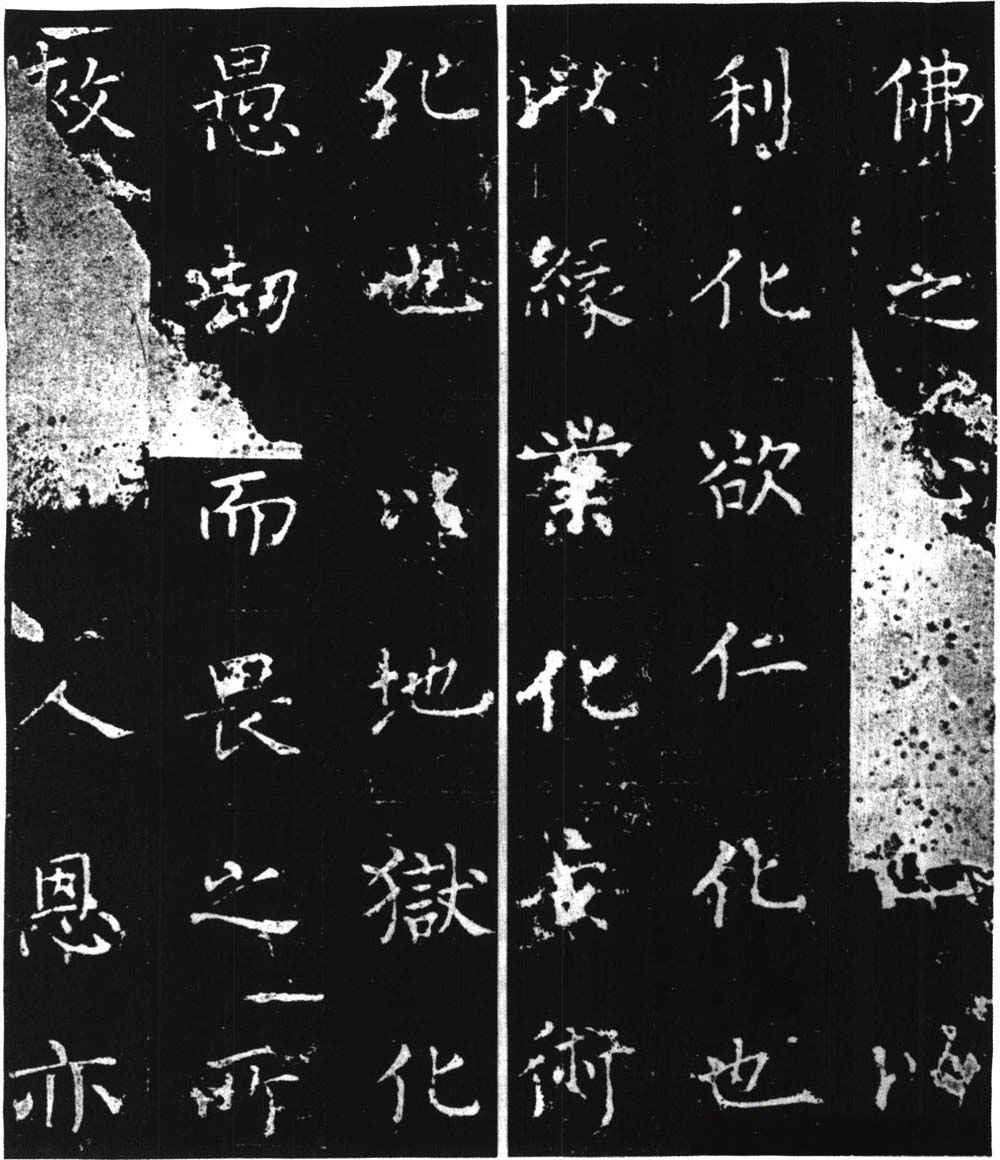 佛之也以
利化欲仁化也
以緣業化妄術
化也以地獄化
愚劫而畏之所
故人恩亦